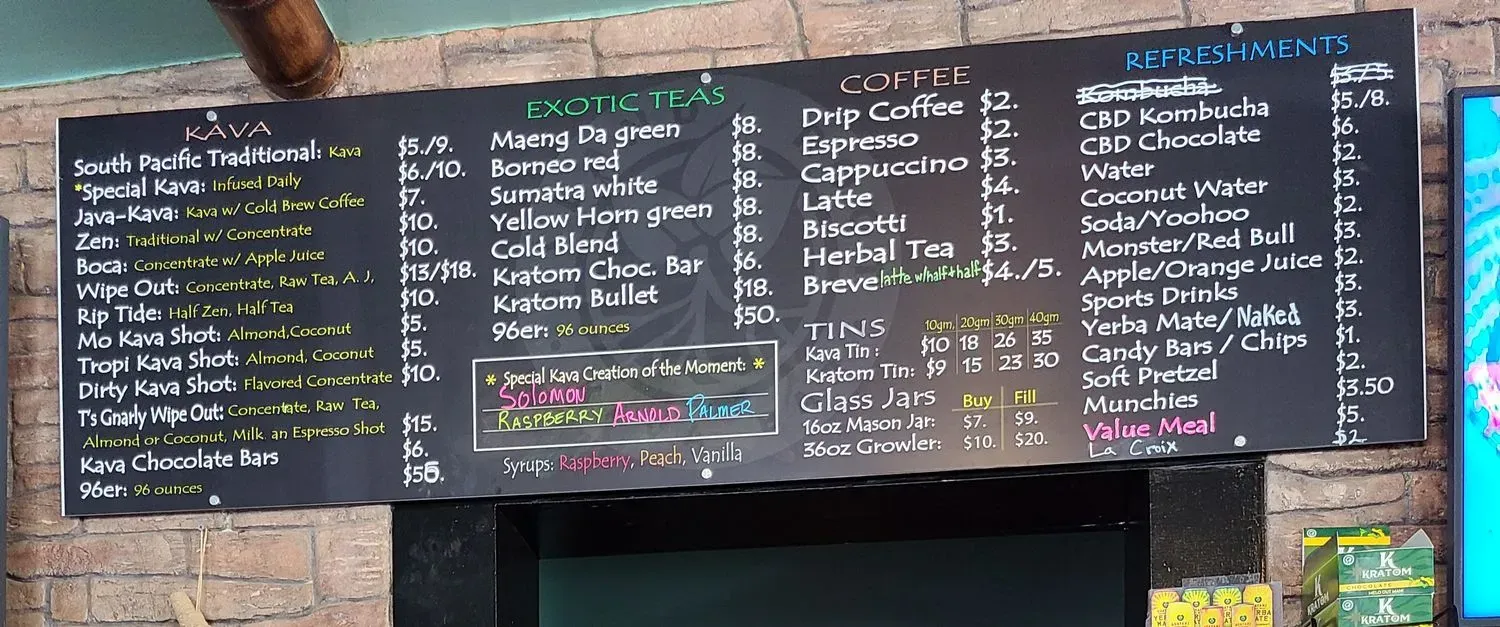 KAVA
South Pacific Traditional: Kava $5./9.
*Special Kava: Infused Daily $6./10.
Java-Kava: Kava w/ Cold Brew Coffee $7.
Zen: Traditional w/ Concentrate $10.
Boca: Concentrate w/ Apple Juice $10.
Wipe Out: Concentrate, Raw Tea, A. J, $13/$18.
Rip Tide: Half Zen, Half Tea $10.
Mo Kava Shot: Almond,Coconut $5.
Tropi Kava Shot: Almond, Coconut $5.
Dirty Kava Shot: Flavored Concentrate $10.
T's Gnarly Wipe Out: Concentrate, Raw Tea,
Almond or Coconut, Milk. an Espresso Shot $15.
Kava Chocolate Bars $6.
96er: 96 ounces
EXOTIC TEAS
Maeng Da green $8.
Borneo red $8.
Sumatra white $8.
Yellow Horn green $8.
Cold Blend $8.
Kratom Choc. Bar $6.
Kratom Bullet $18.
96er: 96 ounces $50.
* Special Kava Creation of the Moment: *
SOLOMON
RASPBERRY ARNOLD PALMER
Syrups: Raspberry, Peach, Vanilla
COFFEE
Drip Coffee $2.
Espresso $2.
Cappuccino $3.
Latte $4.
Biscotti $1.
Herbal Tea $3.
Breve latte w/half+half $4./5.
TINS 10gm, 20gm 30gm 40gm
Kava Tin : $10 18 26 35
Kratom Tin: $9 15 23 30
Glass Jars Buy Fill
16oz Mason Jar: $7. $9.
36oz Growler: $10. $20.
REFRESHMENTS
Kombucha $3./5.
CBD Kombucha $5./8.
CBD Chocolate $6.
Water $2.
Coconut Water $3.
Soda/Yoohoo $2.
Monster/Red Bull $3.
Apple/Orange Juice $2.
Sports Drinks $3.
Yerba Mate/Naked $3.
Candy Bars / Chips $1.
Soft Pretzel $2.
Munchies $3.50
Value Meal $5.
La Croix $2
K
KRATOM
CHOCOLATE
K
KRATOM
KRATOM